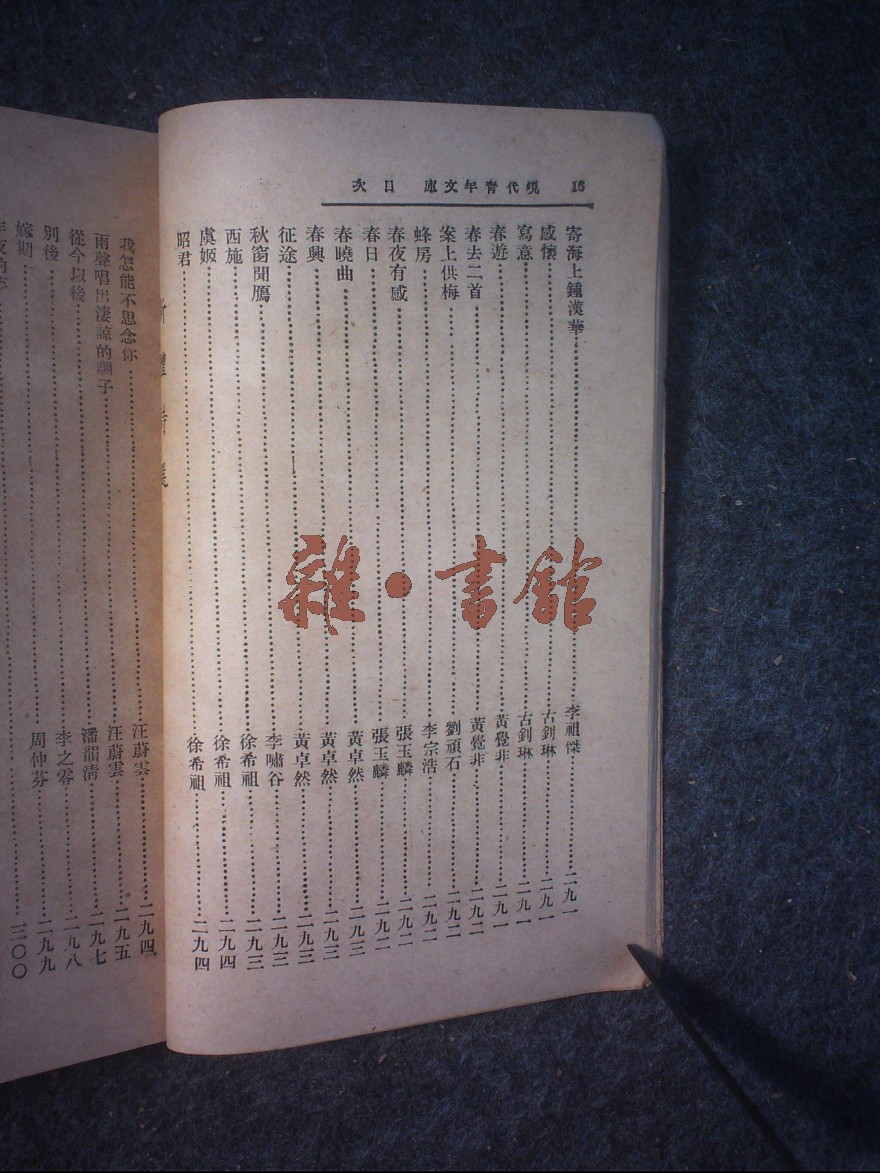 16 現代青年文庫 目次
寄海上鍾漢華……李祖傑……二九一
感懷……古釗琳……二九一
寫意……古釗琳……二九一
春遊……黃覺非……二九一
春去二首……黃覺非……二九二
案上供梅……劉頑石……二九二
蜂房……李宗浩……二九二
春夜有感……張玉麟……二九二
春日……張玉麟……二九二
春曉曲……黃卓然……二九三
春興……黃卓然……二九三
征途……黃卓然……二九三
秋窗聞鴈……李嘯谷……二九三
西施……徐希祖……二九三
虞姬……徐希祖……二九四
昭君……徐希祖……二九四
新體詩選
我怎能不思念你……汪蔚雲……二九四
雨聲唱出淒諒的調子……汪蔚雲……二九五
從今以後……潘韻清……二九七
別後……李之零……二九八
嫁期……周仲芬……二九九
三〇〇
雜·書館